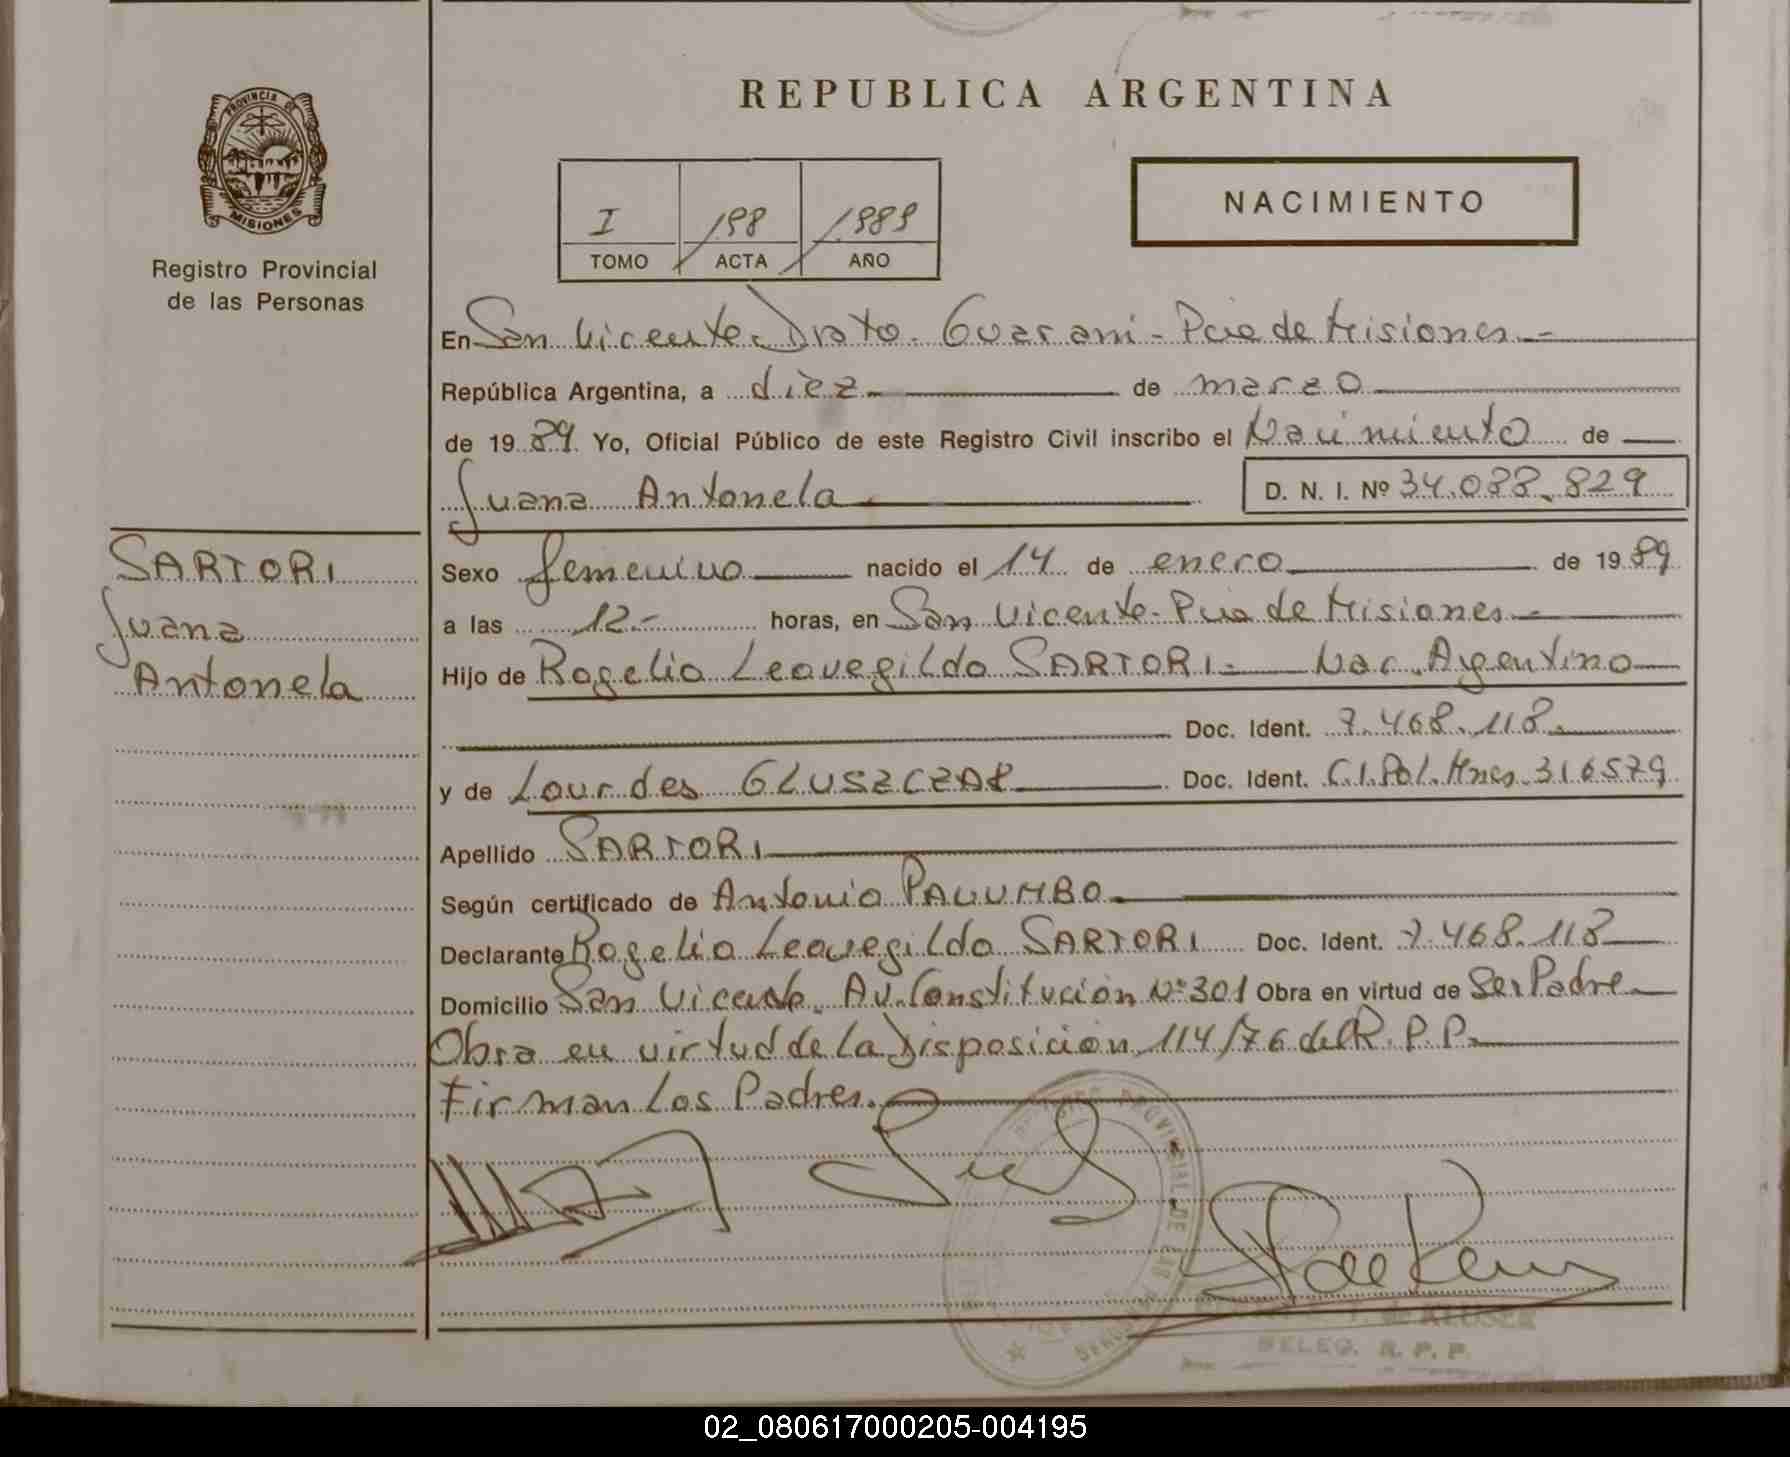 PROVINCIA DE
MISIONES
Registro Provincial
de las Personas
REPUBLICA ARGENTINA
I 198 1989
TOMO ACTA AÑO
NACIMIENTO
En San Vicente Dpto. Guarani - Pcia de Misiones.-
República Argentina, a diez de marzo
de 1989. Yo, Oficial Público de este Registro Civil inscribo el Nacimiento de
Juana Antonela D. N. I. Nº 34.088.829
SARTORI
Juana
Antonela
Sexo femenino nacido el 14 de enero de 1989
a las 12.- horas, en San Vicente - Pcia de Misiones.-
Hijo de Rogelio Leovegildo SARTORI.- Nac. Argentino
Doc. Ident. 7.468.118.
y de Lourdes GLUSZCZAK Doc. Ident. C.I.Pol.Mnes.316579
Apellido SARTORI
Según certificado de Antonio PALUMBO.
Declarante Rogelio Leovegildo SARTORI Doc. Ident. 7.468.118
Domicilio San Vicente, Av. Constitución Nº 301 Obra en virtud de Ser Padre
Obra en virtud de la Disposición 114/76 del R.P.P.
Firman Los Padres.
PROVINCIAL DE LAS
de KLUSEK
DELEG. R. P. P.
02_080617000205-004195